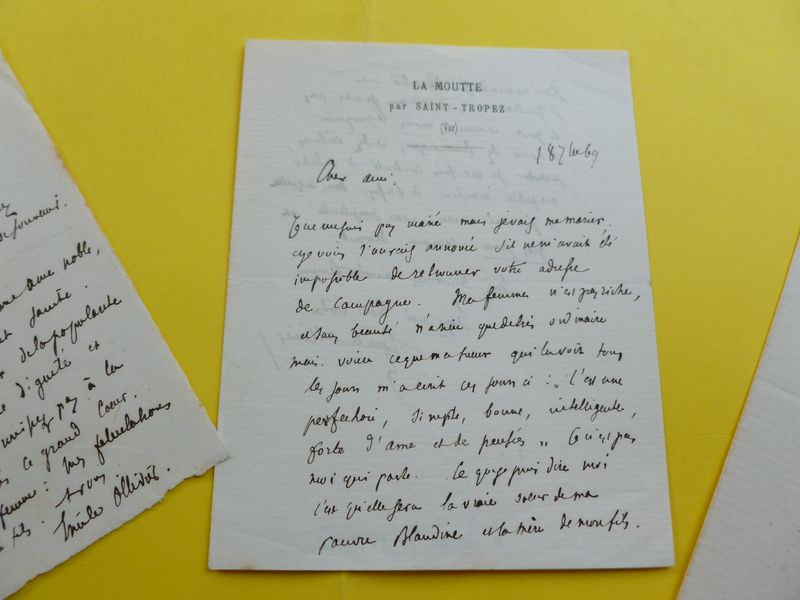 LA MOUTTE
par SAINT-TROPEZ
(Var)
Cher ami.
Je ne suis pas marié mais je vais me marier,
et je vous l'aurais annoncé s'il ne m'avait été
impossible de retrouver votre adresse
de campagne. Ma femme n'est pas riche,
et sans beauté n'a rien que de très ordinaire
mais voici ce que ma sœur qui la voit tous
les jours m'a écrit ces jours ci : "C'est une
perfection, simple, bonne, intelligente,
forte d'ame et de pensées" Ce n'est pas
moi qui parle. Ce que je puis dire moi
c'est qu'elle sera la vraie sœur de ma
pauvre Blandine et la mère de mon fils.
ame noble,
santé.
de la popularité
dignité et
pas à la
ce grand cœur.
femme : mes félicitations
fils.
Emile Ollivier.